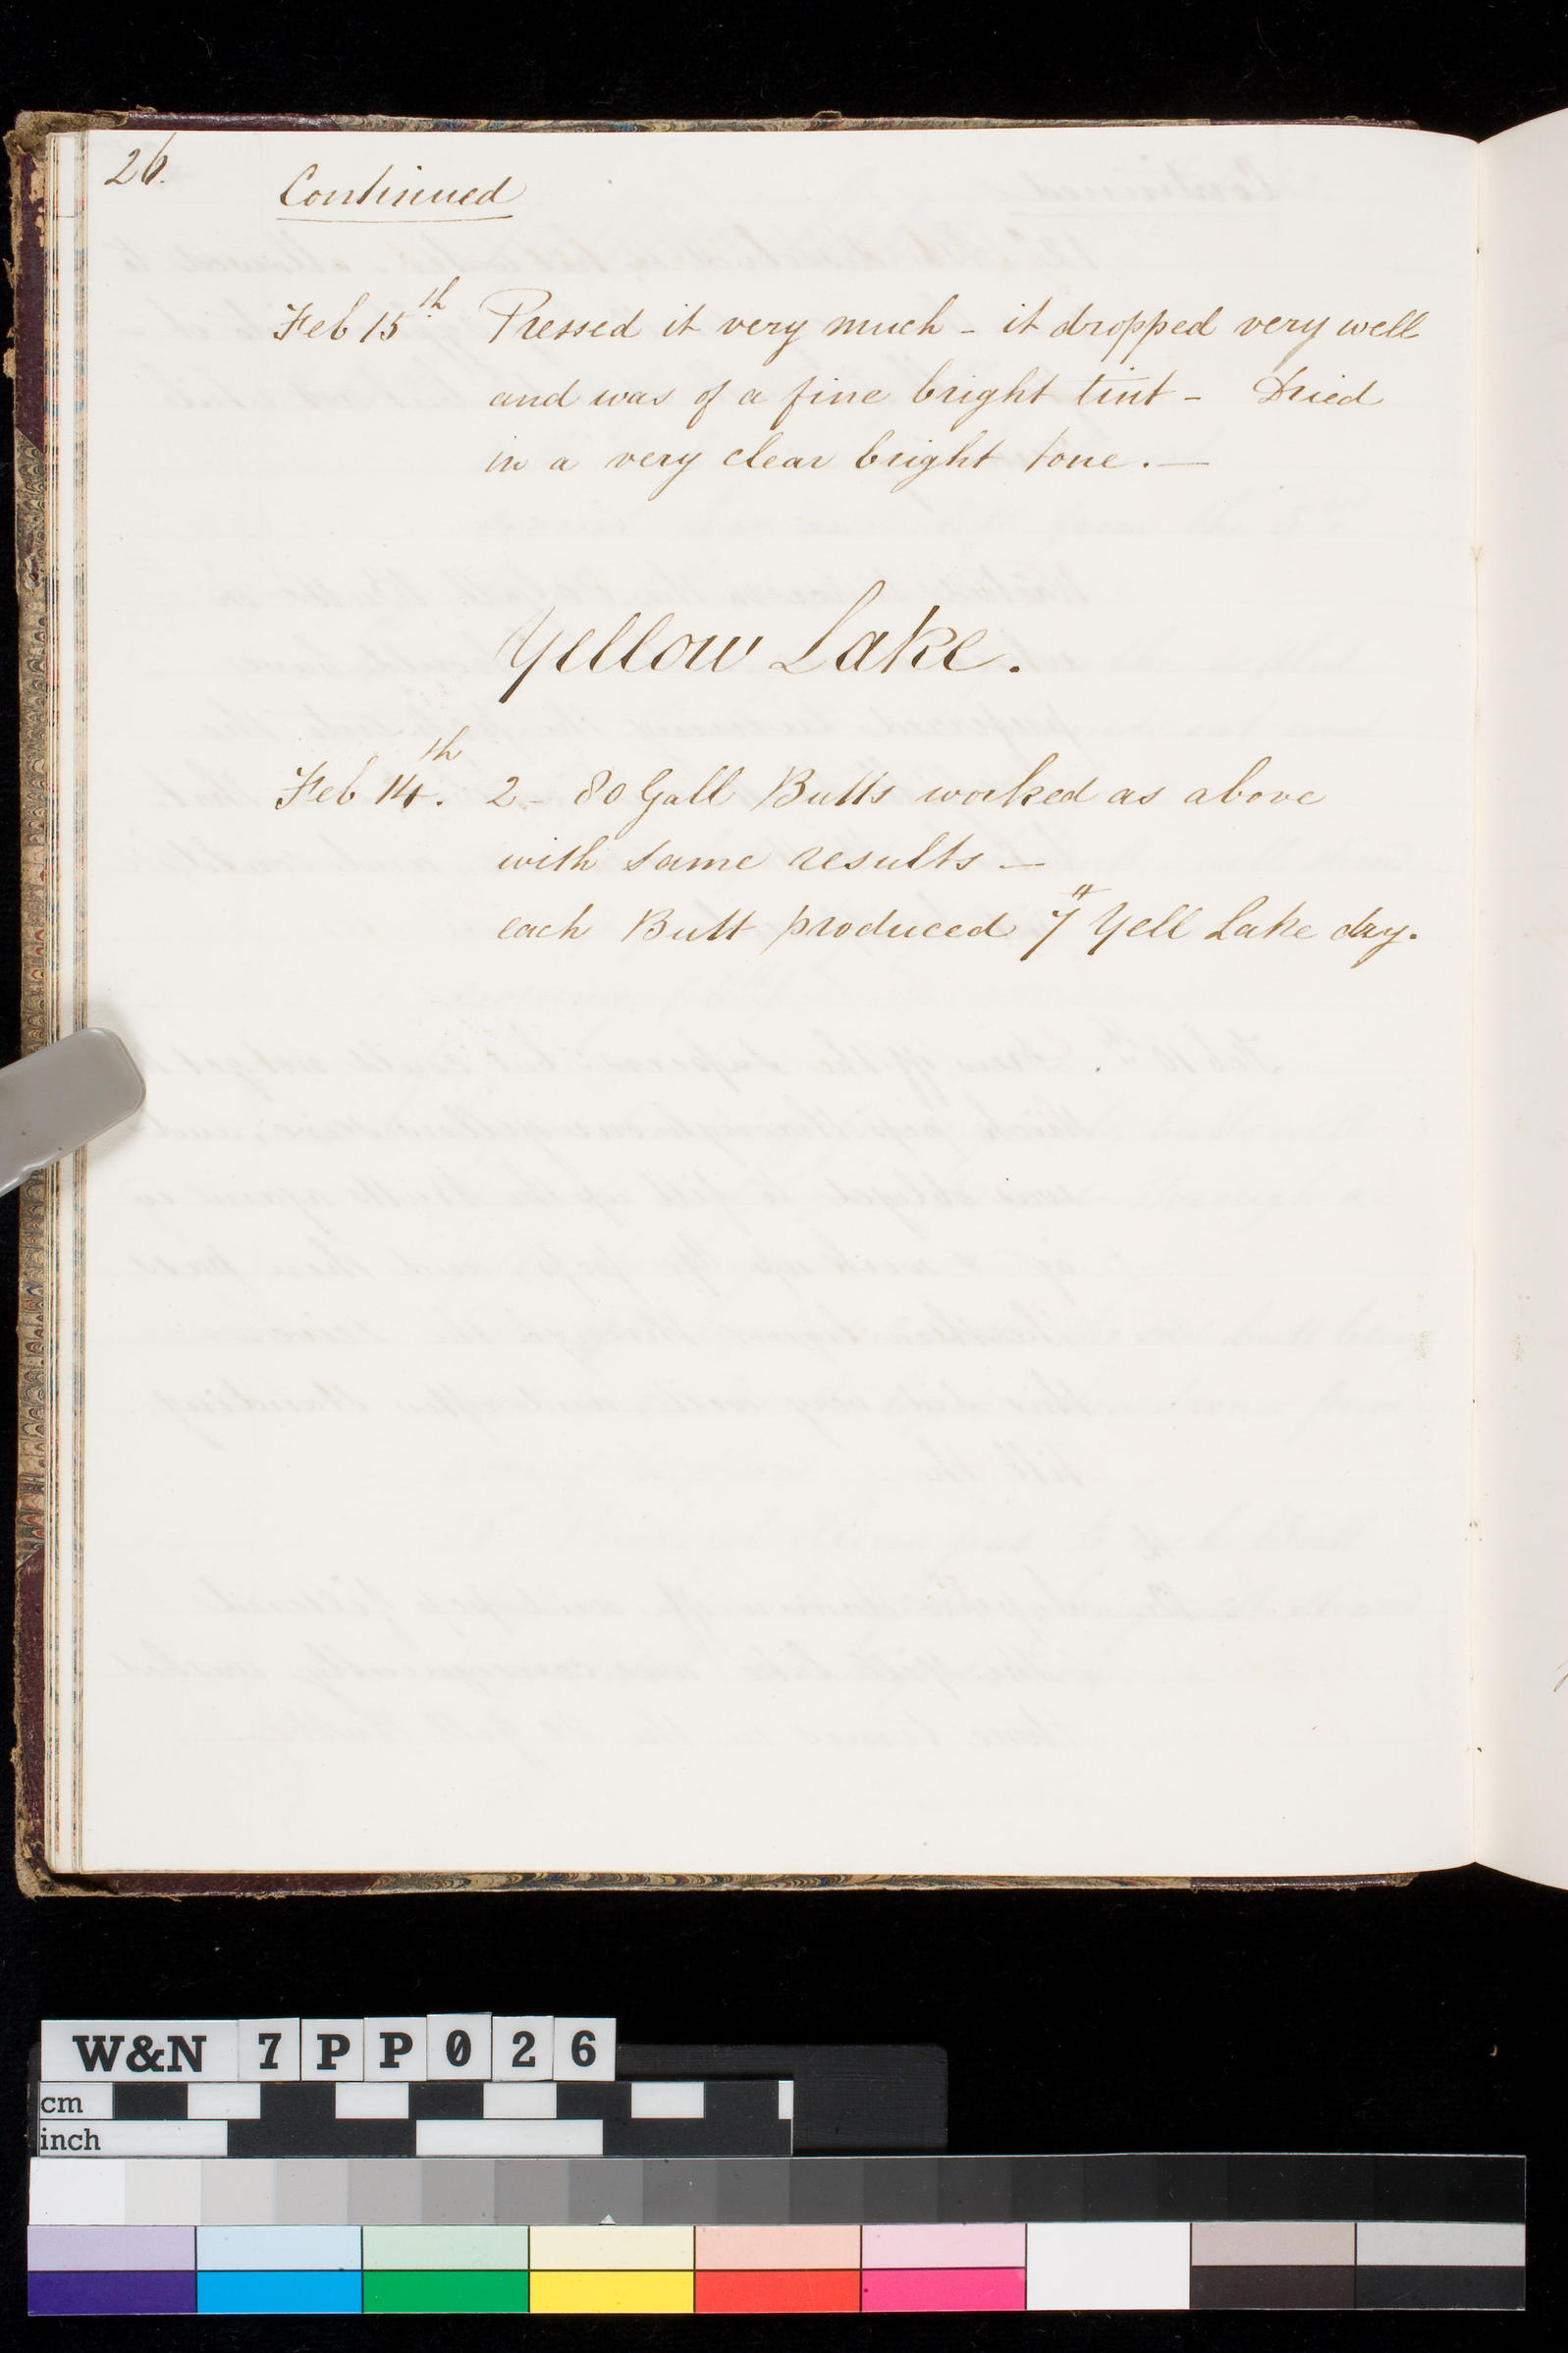 26.
Continued
Feb 15th Pressed it very much - it dropped very well
and was of a fine bright tint - Dried
in a very clear bright tone. —
Yellow Lake.
Feb 14th. 2 - 80 Gall Butts worked as above
with same results —
each Butt produced 7# Yell Lake dry.
W&N 7PP026
cm
inch